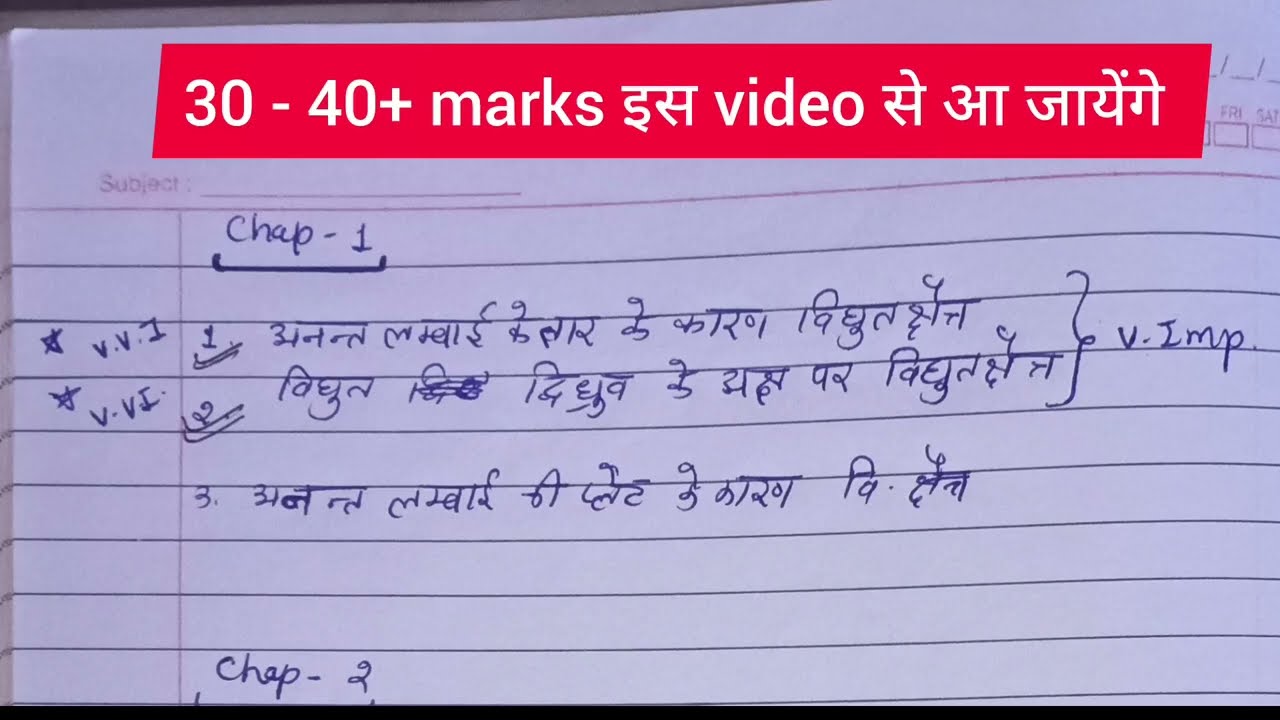 30 - 40+ marks इस video से आ जायेंगे
_/__/_
FRI SAT
Subject :
Chap - 1
★ V.V.I 1. अनन्त लम्बाई के तार के कारण विधुत क्षेत्र
★ V.VI. 2. विधुत द्विध्रुव के अक्ष पर विधुत क्षेत्र } V. Imp.
3. अनन्त लम्बाई की प्लेट के कारण वि. क्षेत्र
Chap - 2